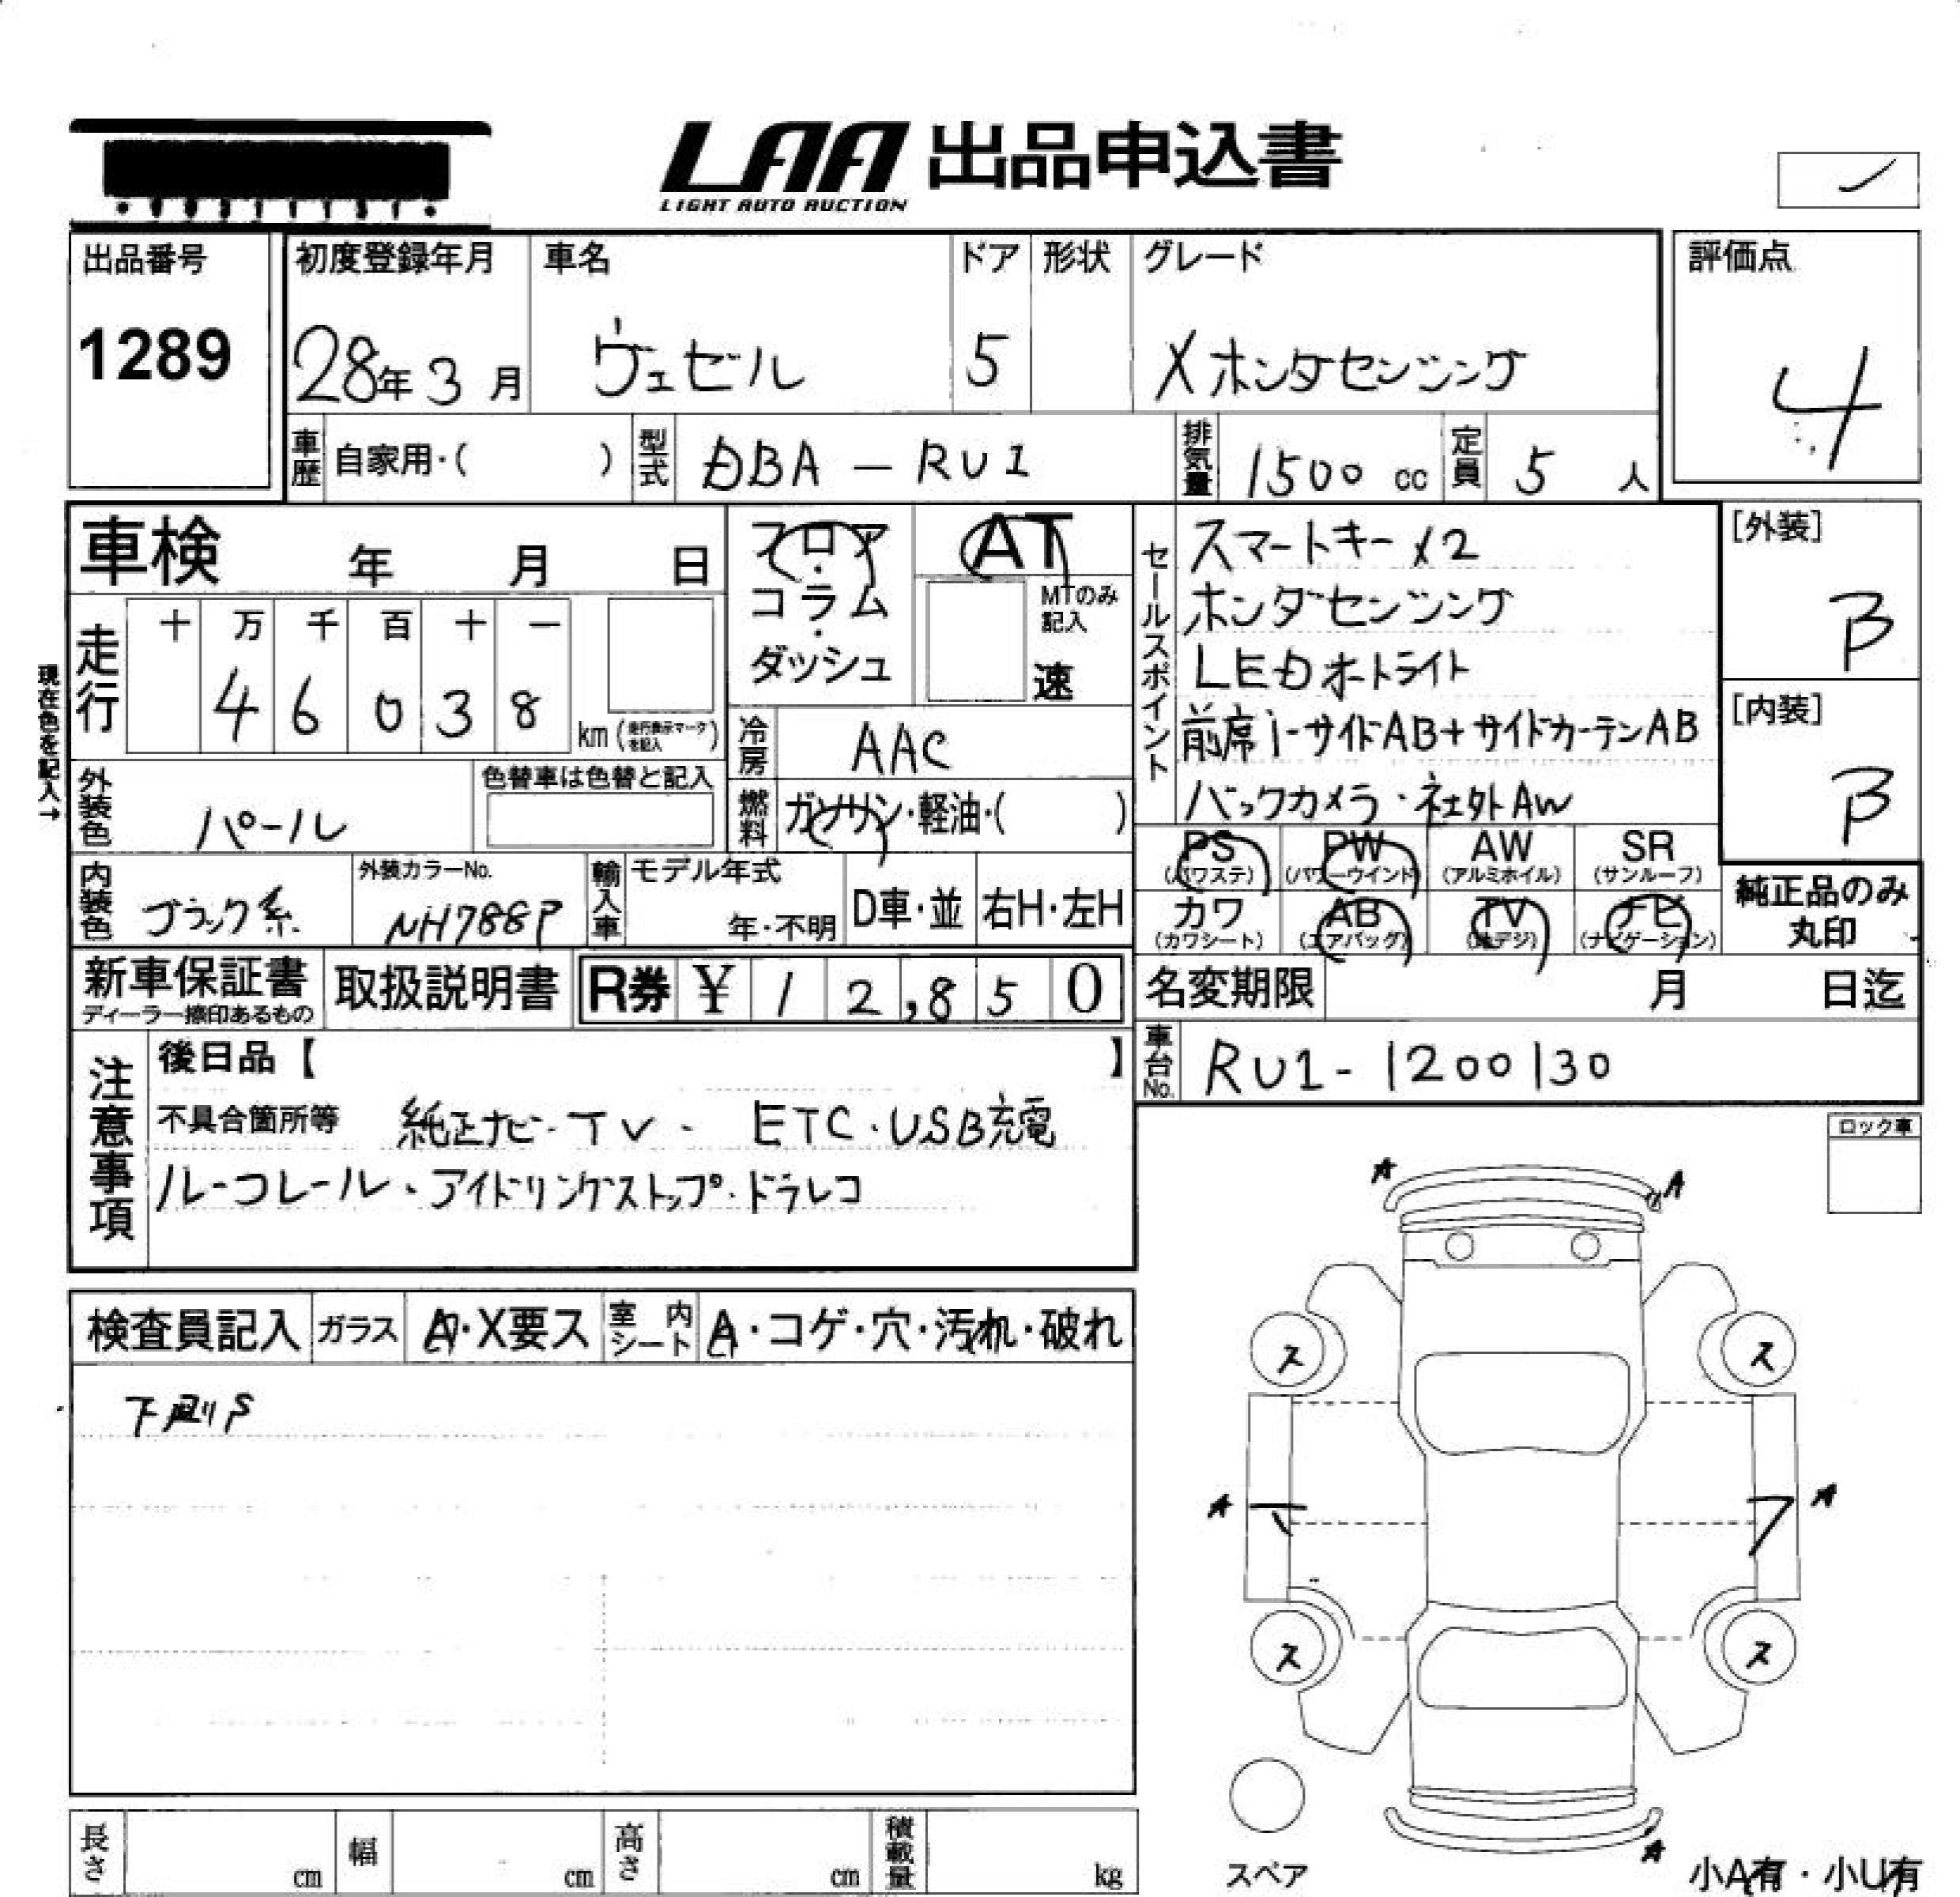 LAA 出品申込書
LIGHT AUTO AUCTION
出品番号 初度登録年月 車名 ドア 形状 グレード 評価点
1289 28年3月 ヴェゼル 5 Xホンダセンシング 4
車歴 自家用・( ) 型式 DBA-RU1 排気量 1500 cc 定員 5 人
車検 年 月 日
フロア・コラム・ダッシュ
AT
MTのみ記入
速
セールスポイント
スマートキーX2
ホンダセンシング
LEDオートライト
前席i-サイドAB+サイドカーテンAB
バックカメラ・社外AW
[外装]
B
[内装]
B
現在色を記入→
走行 十 万 千 百 十 一
4 6 0 3 8 km(走行表示マークを記入)
冷房 AAC
外装色 パール 色替車は色替と記入
燃料 ガソリン・軽油・( )
PS (パワステ) PW (パワーウインド) AW (アルミホイル) SR (サンルーフ)
カワ (カワシート) AB (エアバッグ) TV (地デジ) ナビ (ナビゲーション)
純正品のみ丸印
内装色 ブラック系 外装カラーNo. NH788P 輸入車 モデル年式 年・不明 D車・並 右H・左H
新車保証書 ディーラー捺印あるもの 取扱説明書 R券 ¥12,850
名変期限 月 日迄
車台No. RU1-1200130
注意事項
後日品【 】
不具合箇所等 純正ナビ・TV・ ETC・USB充電
ルーフレール・アイドリングストップ・ドラレコ
ロック車
検査員記入 ガラス A・X要ス 室内シート A・コゲ・穴・汚れ・破れ
A A
ス ス
A A
ス ス
スペア
A
小A有・小U有
長さ cm 幅 cm 高さ cm 積載量 kg